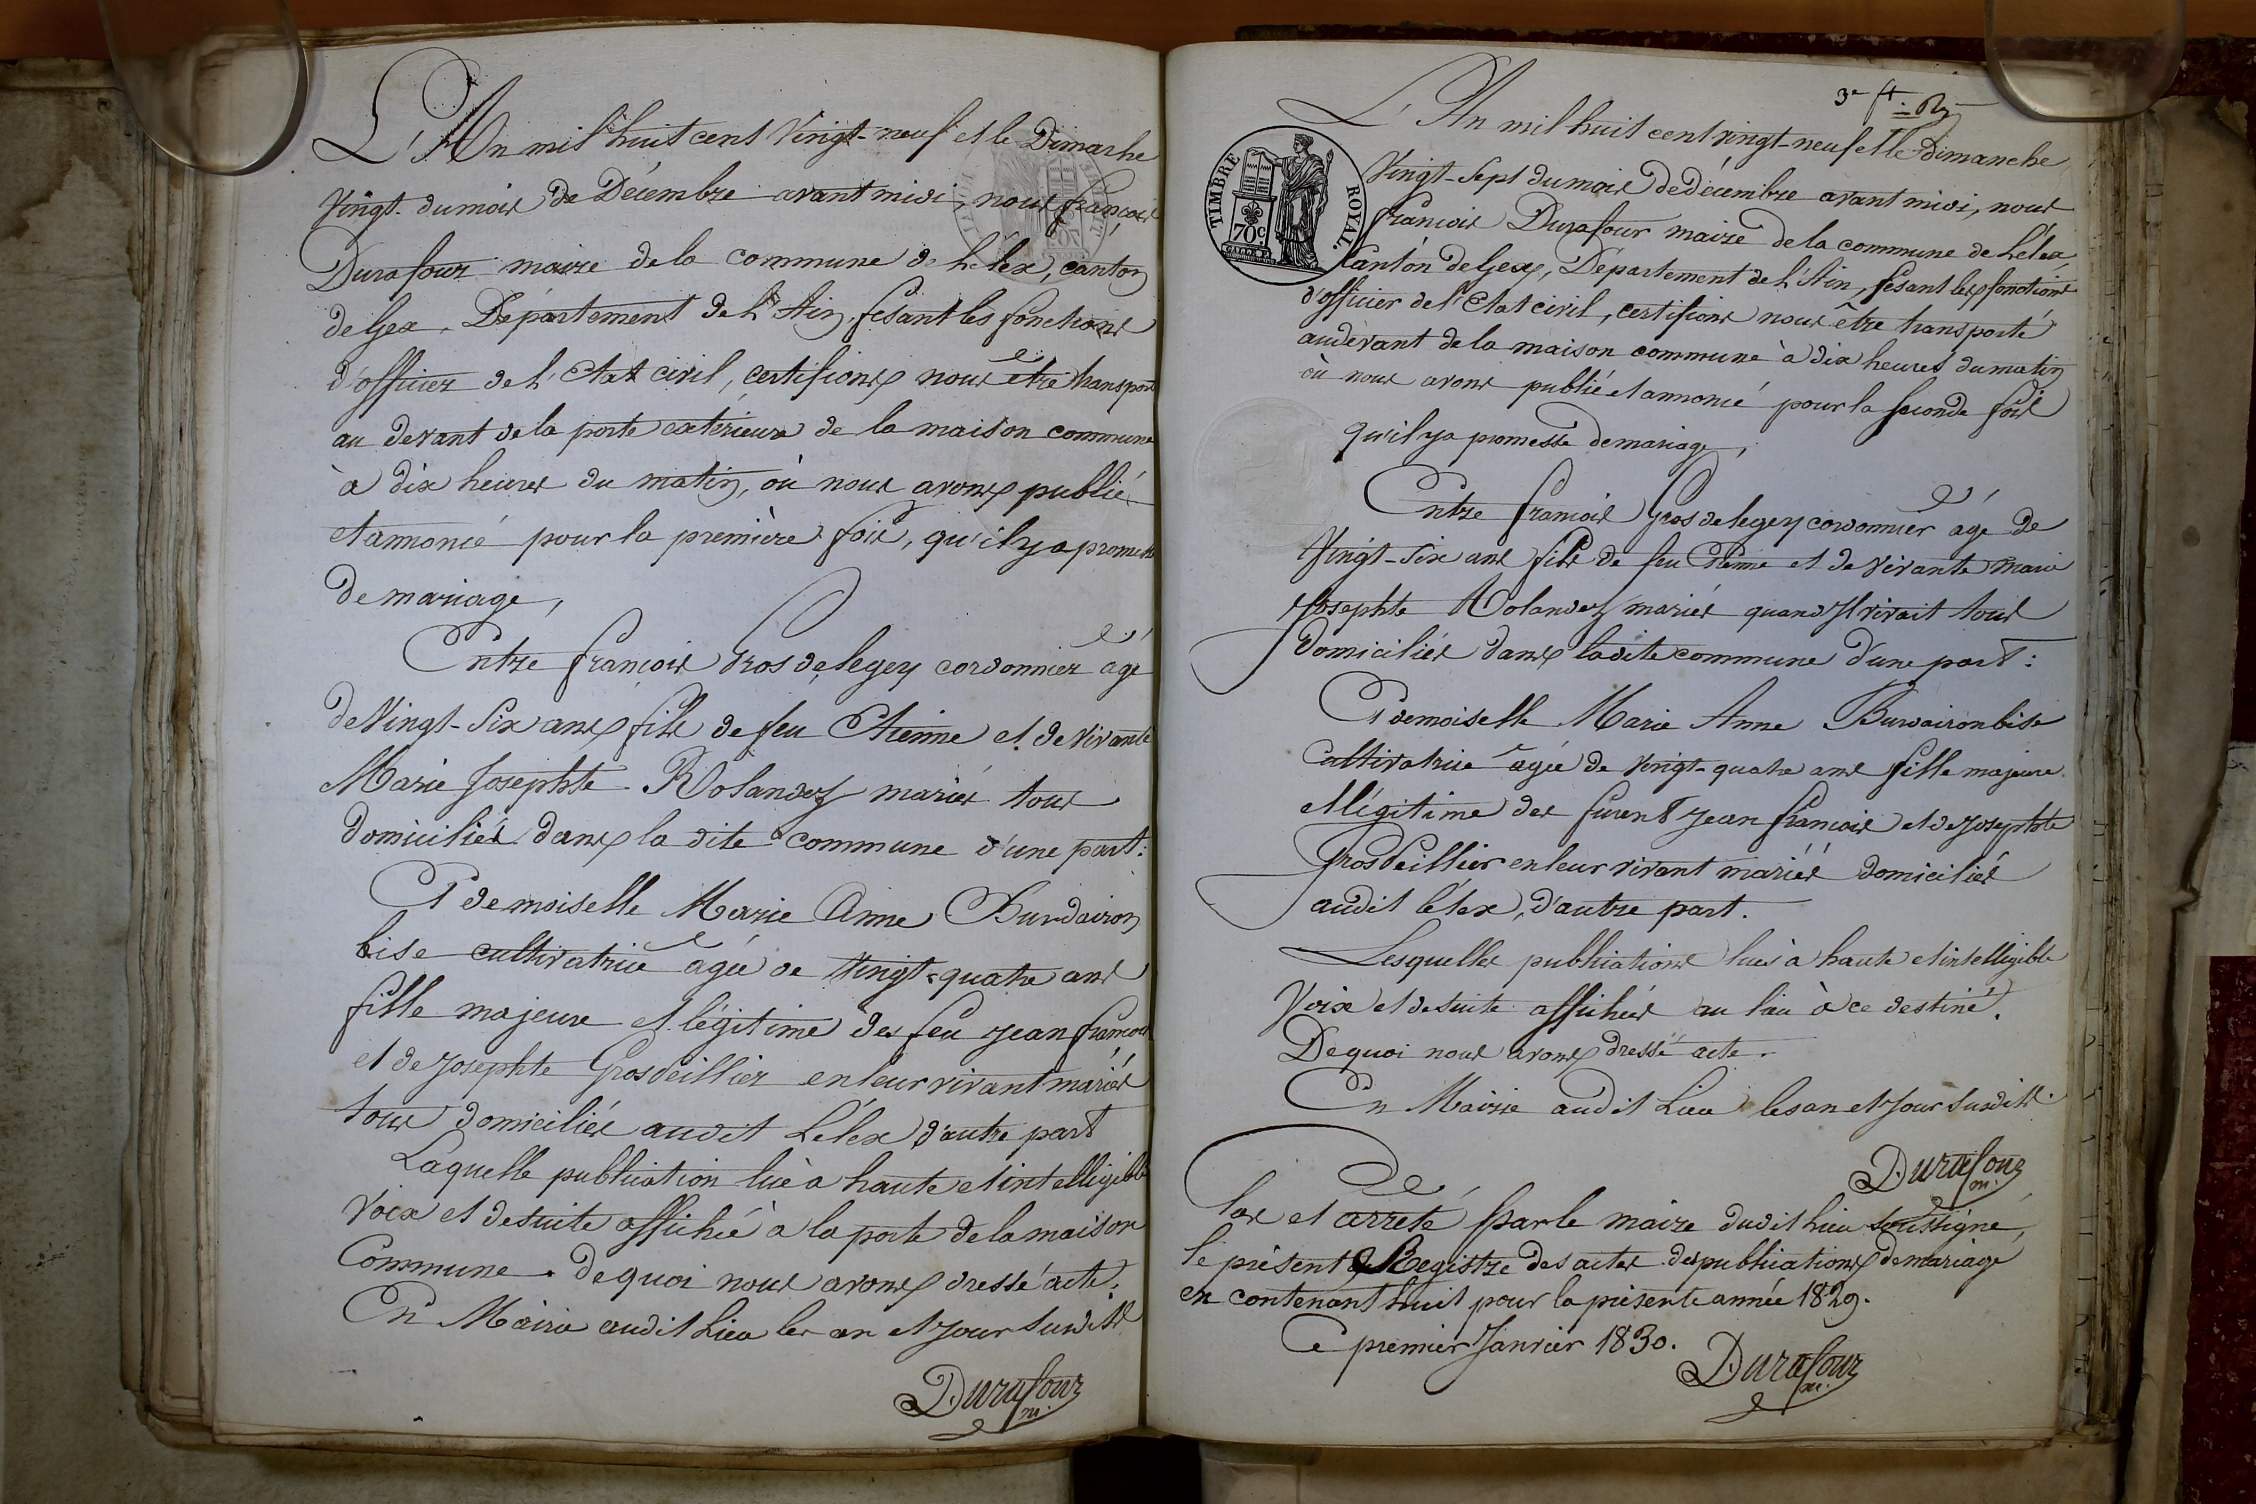 L'An mil huit cent Vingt-neuf et le Dimarhe
Vingt du mois de Décembre avant midi, nous françois
Durafour maire de la commune de Lélex, canton
de Gex, Département de L'Ain, fésant les fonctions
d'officier de L'Etat civil, certifions nous être transpor
au devant de la porte extérieure de la maison commune
à dix heures du matin, où nous avons publié
et annoncé pour la première fois, qu'il y a promesse
de mariage,
Entre françois Grosdelegey cordonnier âgé
de Vingt-Six ans fils de feu Etienne et de vivante
Marie Josephte Rolandez mariés tous
domiciliés dans la dite commune d'une part:
Et demoiselle Marie Anne Burdairon
bise cultivatrice âgée de Vingt-quatre ans
fille majeure et légitime des feu Jean françois
et de Josephte Grosfeillier en leur vivant mariés
tous domiciliés audit Lélex d'autre part
Laquelle publication lue à haute et intelligible
Voix et desuite affichée à la porte de la maison
Commune. de quoi nous avons dressé acte.
En Mairie audit Lieu les an et Jour Susdits
Durafour
m.
3e ft
L'An mil huit cent vingt-neuf et le dimanche
Vingt-Sept du mois de décembre avant midi, nous
françois Durafour maire de la commune de Lélex
Canton de Gex, Département de L'Ain, fésant les fonctions
d'officier de l'Etat civil, certifions nous être transporté
audevant de la maison commune à dix heures du matin
où nous avons publié et annoncé pour la seconde fois
qu'il y a promesse de mariage,
TIMBRE ROYAL.
70c
Entre françois Grosdelegey cordonnier âgé de
Vingt-Six ans fils de feu Etienne et de vivante marie
Josephte Rolandez mariés quand Il vivait tous
domiciliés dans ladite commune d'une part:
Et demoiselle Marie Anne Burdaironbise
Cultivatrice âgée de vingt-quatre ans fille majeure
et légitime des furent Jean françois et de Josephte
Grosfeillier en leur vivant mariés domiciliés
audit lélex, d'autre part.
Lesquelles publications lues à haute et intelligible
Voix et desuite affichées au lieu à ce destiné.
De quoi nous avons dressé acte.
En Mairie audit Lieu les an et Jour Susdits.
Durafour
m.
Clos et arrêté par le maire dudit lieu soussigné,
le présent Registre des actes de publications de mariage
en contenant huit pour la présente année 1829.
Ce premier Janvier 1830.
Durafour
m.